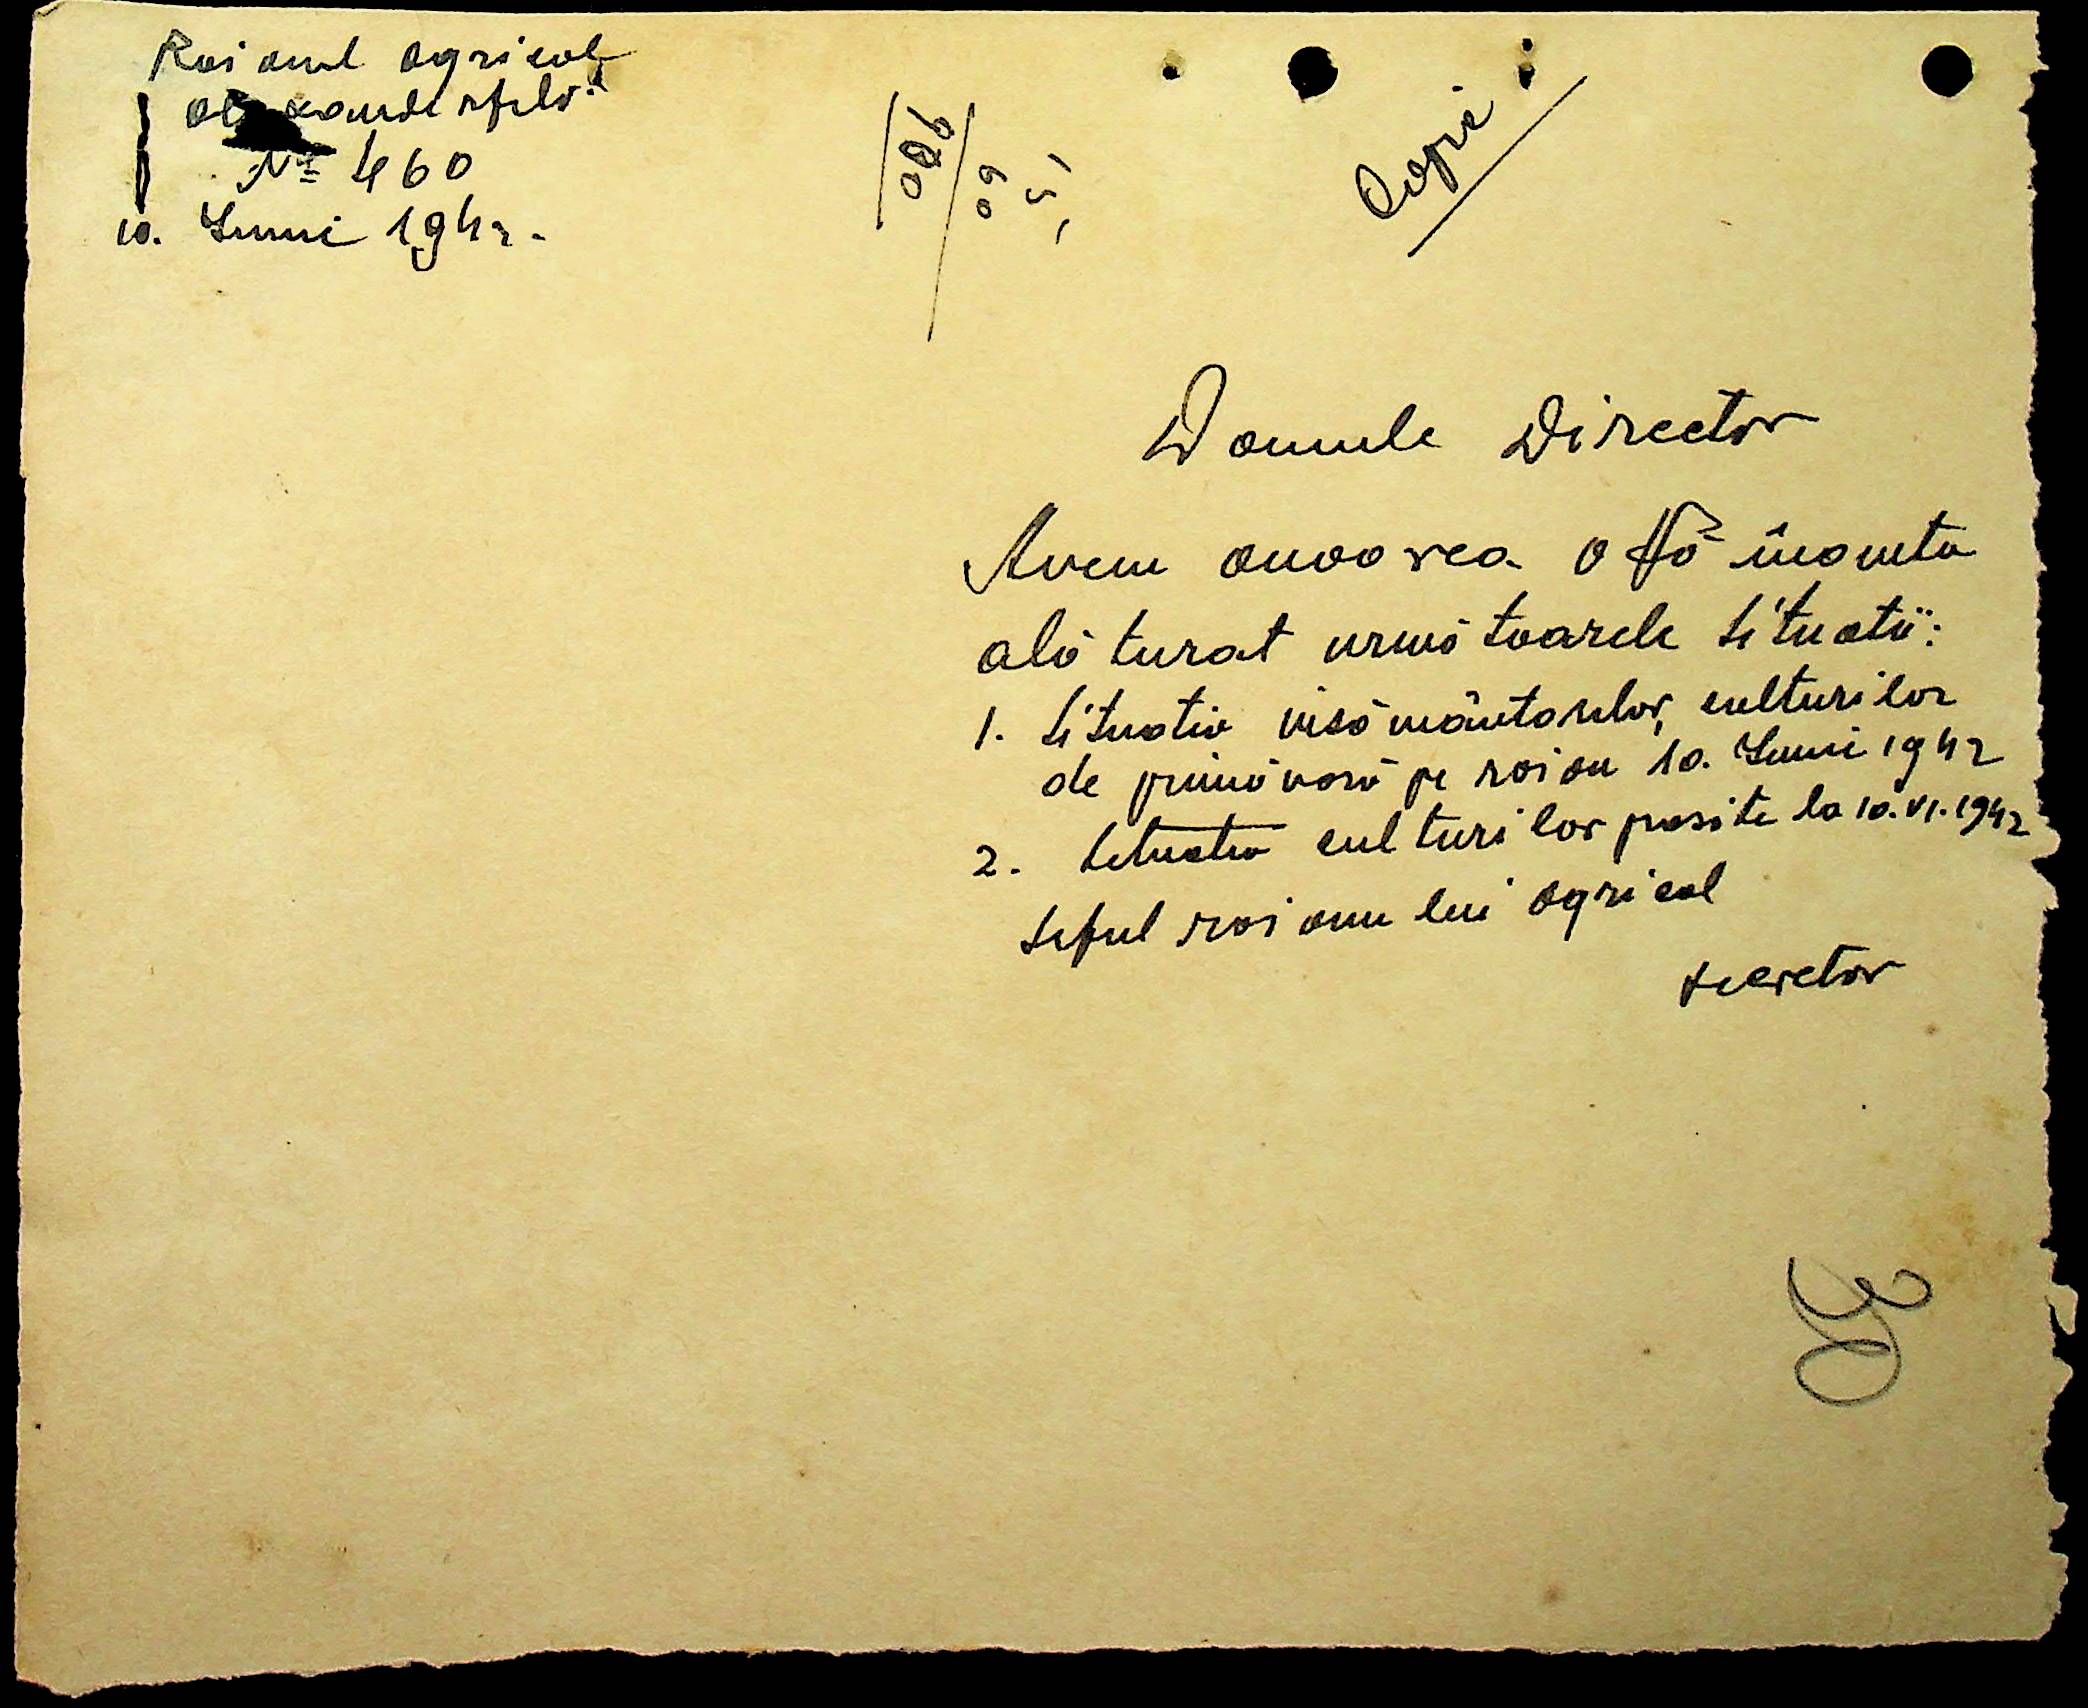 Raionul agricol
Alexanderfeld
№ 460
10. Iunie 1942.
Copie
Domnule Director
Avem onoarea a Vă înainta
alăturat următoarele situatii:
1. Situatia însămânțarilor, culturilor
de primăvară pe raion 10. Iunie 1942
2. Situatia culturilor prasite la 10.VI.1942
Seful raionului agricol
Secretar